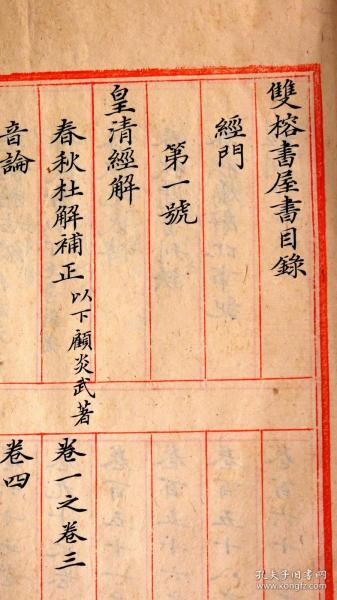 雙榕書屋書目錄
經門
第一號
皇清經解
春秋杜解補正 以下顧炎武著 卷一之卷三
音論 卷四
孔夫子旧书网